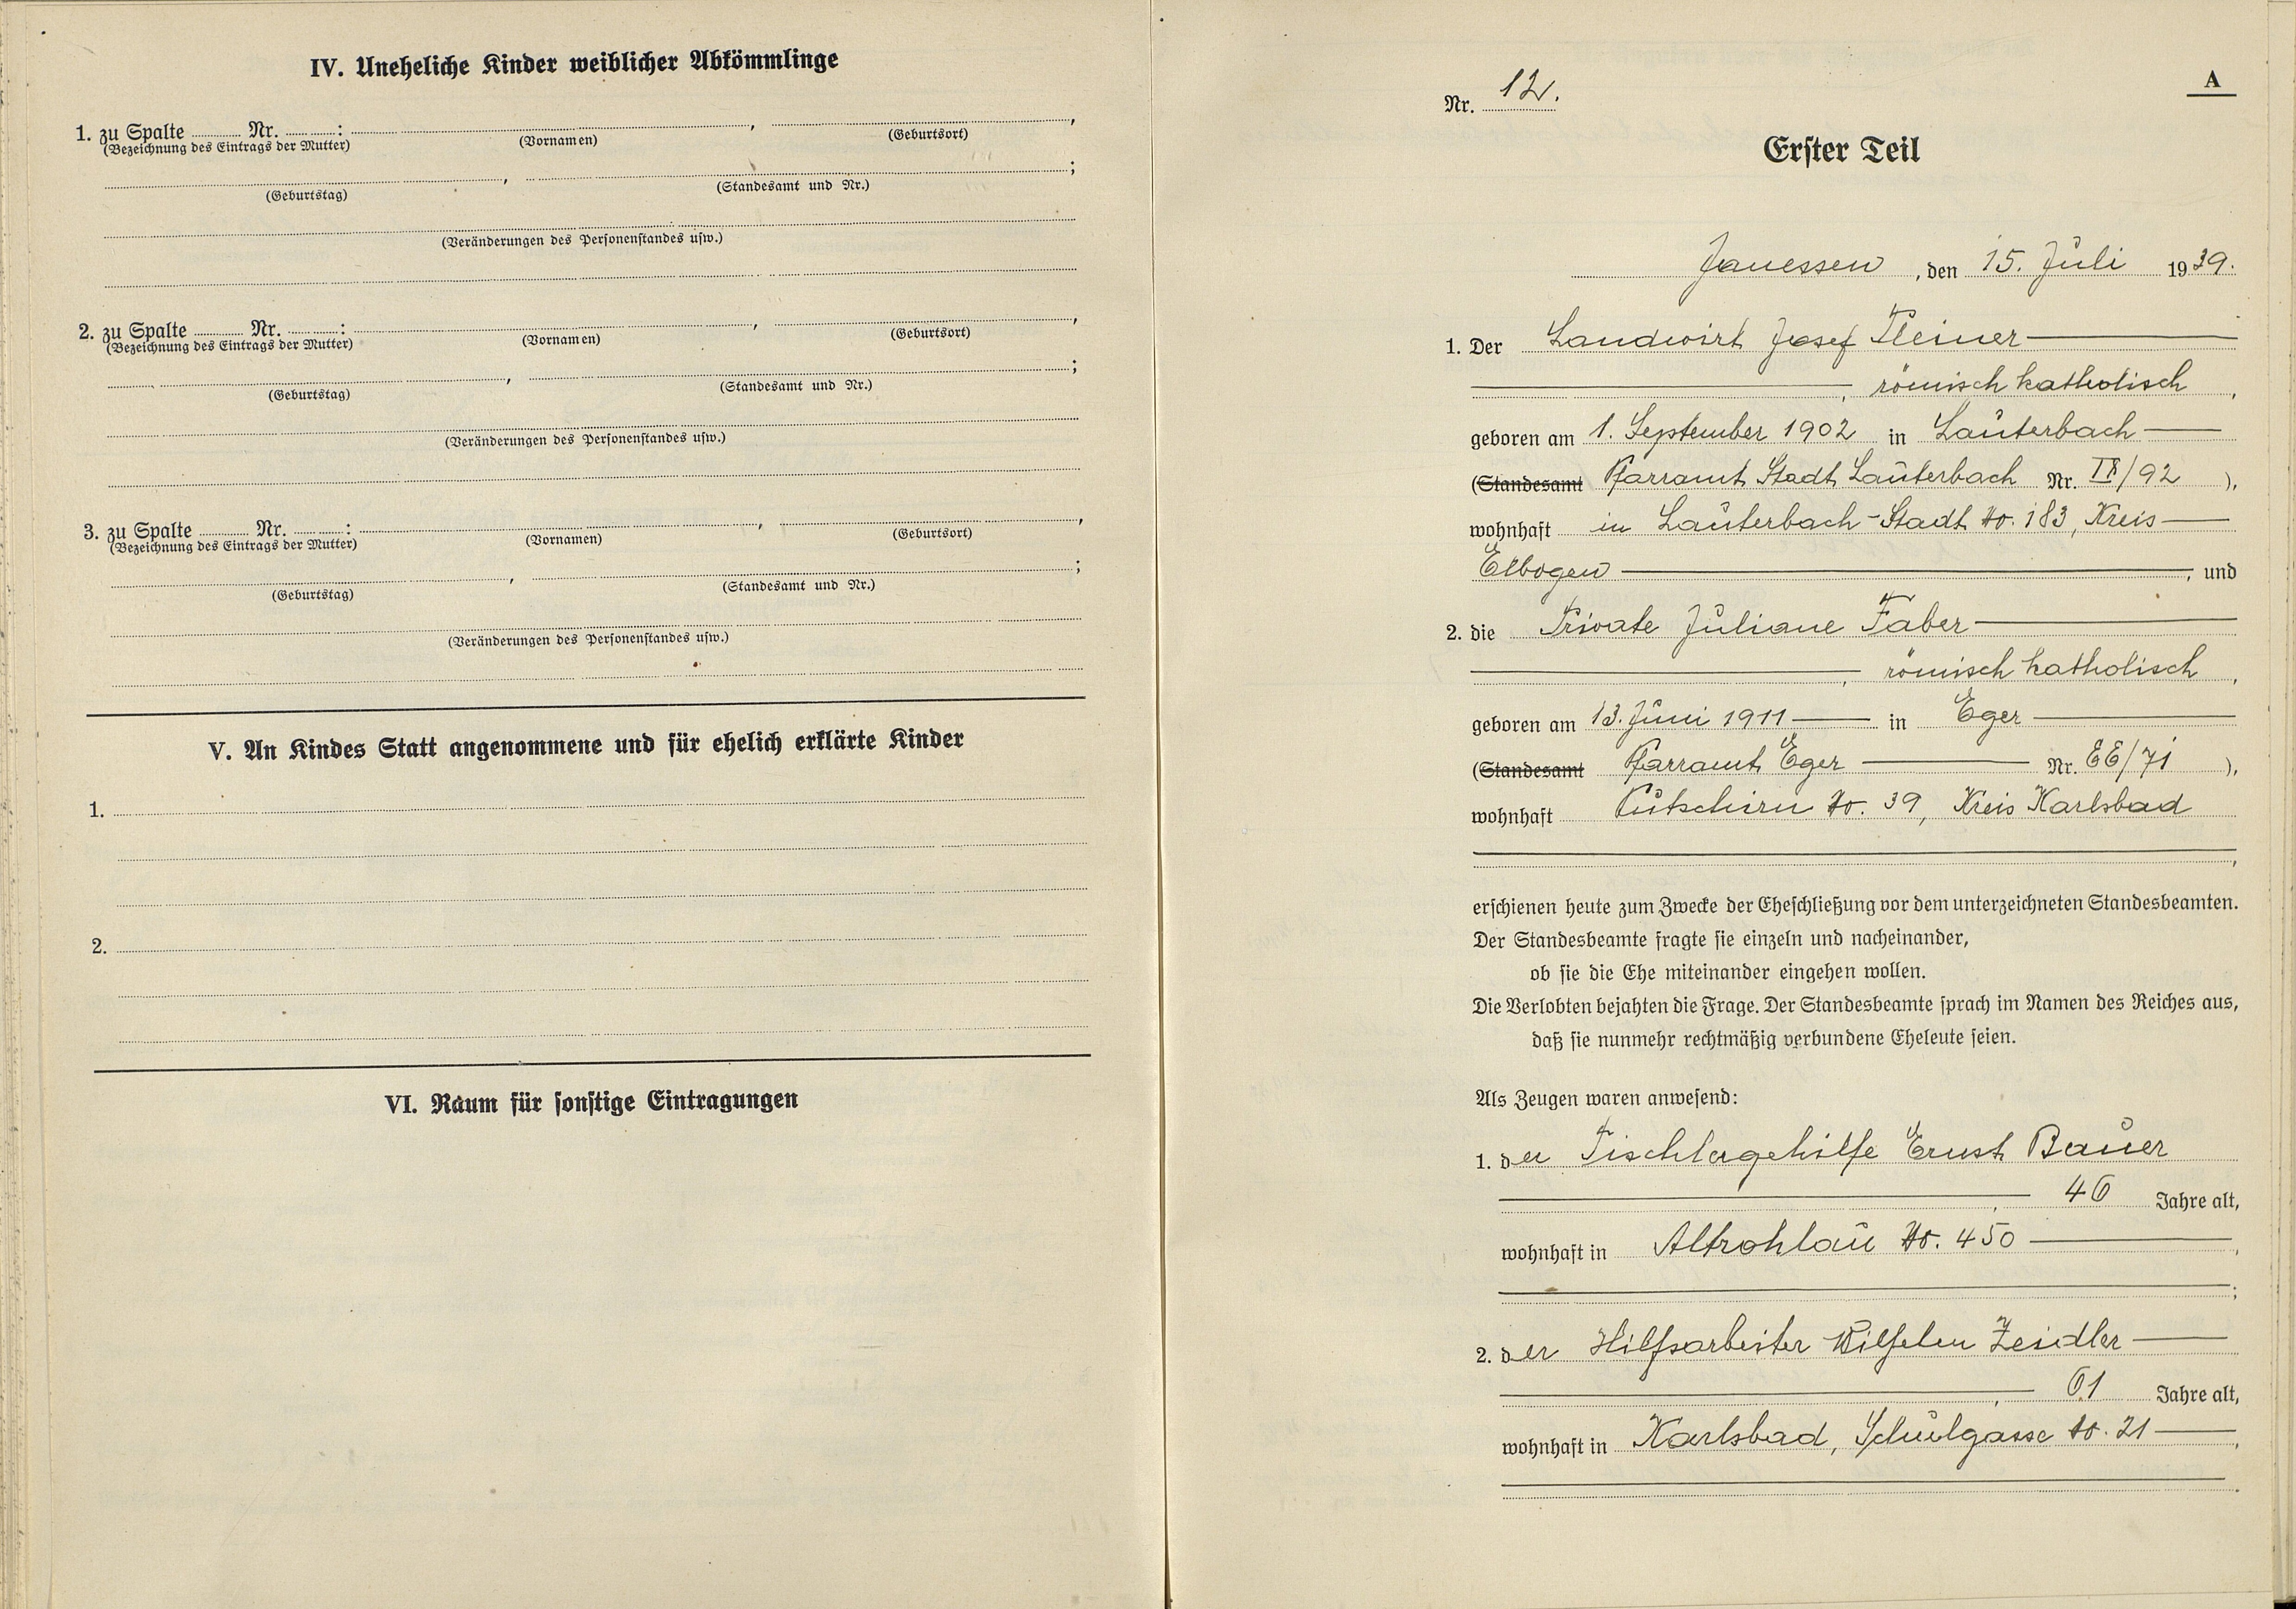 IV. Uneheliche Kinder weiblicher Abkömmlinge
1. zu Spalte ........ Nr. ........: ........, ........,
(Bezeichnung des Eintrags der Mutter) (Vornamen) (Geburtsort)
........, ........;
(Geburtstag) (Standesamt und Nr.)
(Veränderungen des Personenstandes usw.)
2. zu Spalte ........ Nr. ........: ........, ........,
(Bezeichnung des Eintrags der Mutter) (Vornamen) (Geburtsort)
........, ........;
(Geburtstag) (Standesamt und Nr.)
(Veränderungen des Personenstandes usw.)
3. zu Spalte ........ Nr. ........: ........, ........,
(Bezeichnung des Eintrags der Mutter) (Vornamen) (Geburtsort)
........, ........;
(Geburtstag) (Standesamt und Nr.)
(Veränderungen des Personenstandes usw.)
V. An Kindes Statt angenommene und für ehelich erklärte Kinder
1.
2.
VI. Raum für sonstige Eintragungen
A
Nr. 12.
Erster Teil
Janessen, den 15. Juli 1939.
1. Der Landwirt Josef Pleiner
, römisch katholisch,
geboren am 1. September 1902 in Lauterbach
(Standesamt Pfarramt Stadt Lauterbach Nr. IX/92),
wohnhaft in Lauterbach-Stadt No. 183, Kreis
Elbogen, und
2. die Private Juliane Faber
, römisch katholisch,
geboren am 13. Juni 1911 in Eger
(Standesamt Pfarramt Eger Nr. EE/71),
wohnhaft Putschirn No. 39, Kreis Karlsbad
,
erschienen heute zum Zwecke der Eheschließung vor dem unterzeichneten Standesbeamten.
Der Standesbeamte fragte sie einzeln und nacheinander,
ob sie die Ehe miteinander eingehen wollen.
Die Verlobten bejahten die Frage. Der Standesbeamte sprach im Namen des Reiches aus,
daß sie nunmehr rechtmäßig verbundene Eheleute seien.
Als Zeugen waren anwesend:
1. der Tischlergehilfe Ernst Bauer
, 46 Jahre alt,
wohnhaft in Altrohlau No. 450,
;
2. der Hilfsarbeiter Wilhelm Zeidler
, 61 Jahre alt,
wohnhaft in Karlsbad, Schulgasse No. 21,
.